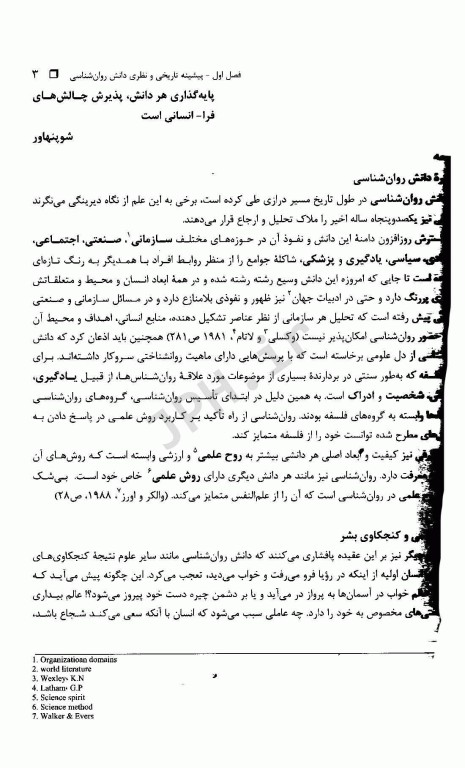 فصل اول - پیشینه تاریخی و نظری دانش روان‌شناسی □ ۳
پایه‌گذاری هر دانش، پذیرش چالش‌های
فرا- انسانی است
شوپنهاور
دانش روان‌شناسی
روان‌شناسی در طول تاریخ مسیر درازی طی کرده است، برخی به این علم از نگاه دیرینگی می‌نگرند
نیز یکصدوپنجاه ساله اخیر را ملاک تحلیل و ارجاع قرار می‌دهند.
روزافزون دامنهٔ این دانش و نفوذ آن در حوزه‌های مختلف سازمانی۱، صنعتی، اجتماعی،
سیاسی، یادگیری و پزشکی، شاکلهٔ جوامع را از منظر روابط افراد با همدیگر به رنگ تازه‌ای
است تا جایی که امروزه این دانش وسیع رشته رشته شده و در همهٔ ابعاد انسان و محیط و متعلقاتش
پررنگ دارد و حتی در ادبیات جهان۲ نیز ظهور و نفوذی بلامنازع دارد و در مسائل سازمانی و صنعتی
پیش رفته است که تحلیل هر سازمانی از نظر عناصر تشکیل دهنده، منابع انسانی، اهداف و محیط آن
روان‌شناسی امکان‌پذیر نیست (وکسلی۳ و لاتام۴، ۱۹۸۱ ص۲۸۱) همچنین باید اذعان کرد که دانش
از دل علومی برخاسته است که با پرسش‌هایی دارای ماهیت روانشناختی سروکار داشته‌اند. برای
که به‌طور سنتی در بردارندهٔ بسیاری از موضوعات مورد علاقهٔ روان‌شناس‌ها، از قبیل یادگیری،
شخصیت و ادراک است. به همین دلیل در ابتدای تأسیس روان‌شناسی، گروه‌های روان‌شناسی
وابسته به گروه‌های فلسفه بودند. روان‌شناسی از راه تأکید بر کاربرد روش علمی در پاسخ دادن به
مطرح شده توانست خود را از فلسفه متمایز کند.
نیز کیفیت و ابعاد اصلی هر دانشی بیشتر به روح علمی۵ و ارزشی وابسته است کـه روش‌های آن
دارد. روان‌شناسی نیز مانند هر دانش دیگری دارای روش علمی۶ خاص خود است. بی‌شک
علمی در روان‌شناسی است که آن را از علم‌النفس متمایز می‌کند. (والکر و اورز۷، ۱۹۸۸، ص۲۸)
و کنجکاوی بشر
نیز بر این عقیده پافشاری می‌کنند که دانش روان‌شناسی مانند سایر علوم نتیجهٔ کنجکاوی‌های
اولیه از اینکه در رؤیا فرو می‌رفت و خواب می‌دید، تعجب می‌کرد. این چگونه پیش می‌آید کـه
خواب در آسمان‌ها به پرواز در می‌آید و یا بر دشمن چیره دست خود پیروز می‌شود؟! عالم بیداری
مخصوص به خود را دارد. چه عاملی سبب می‌شود که انسان با آنکه سعی می‌کنـد شـجاع باشد،
1. Organizatioan domains
2. world literature
3. Wexley، K.N
4. Latham، G.P
5. Science spirit
6. Science method
7. Walker & Evers